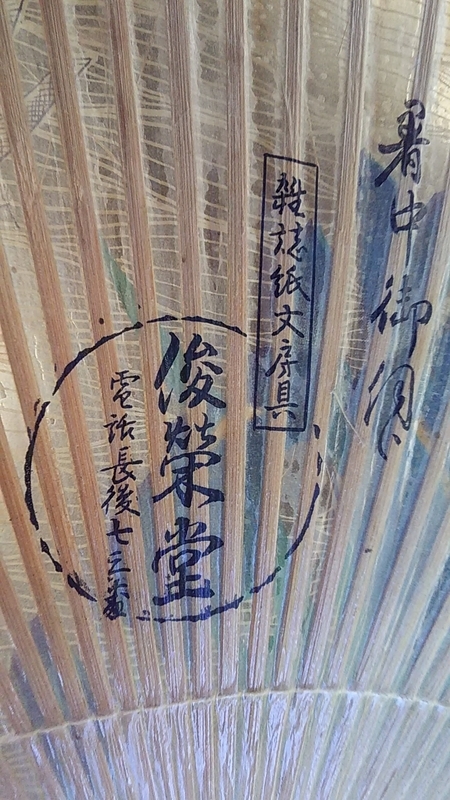 暑中御伺
雜誌紙文房具
俊榮堂
電話長後七三番